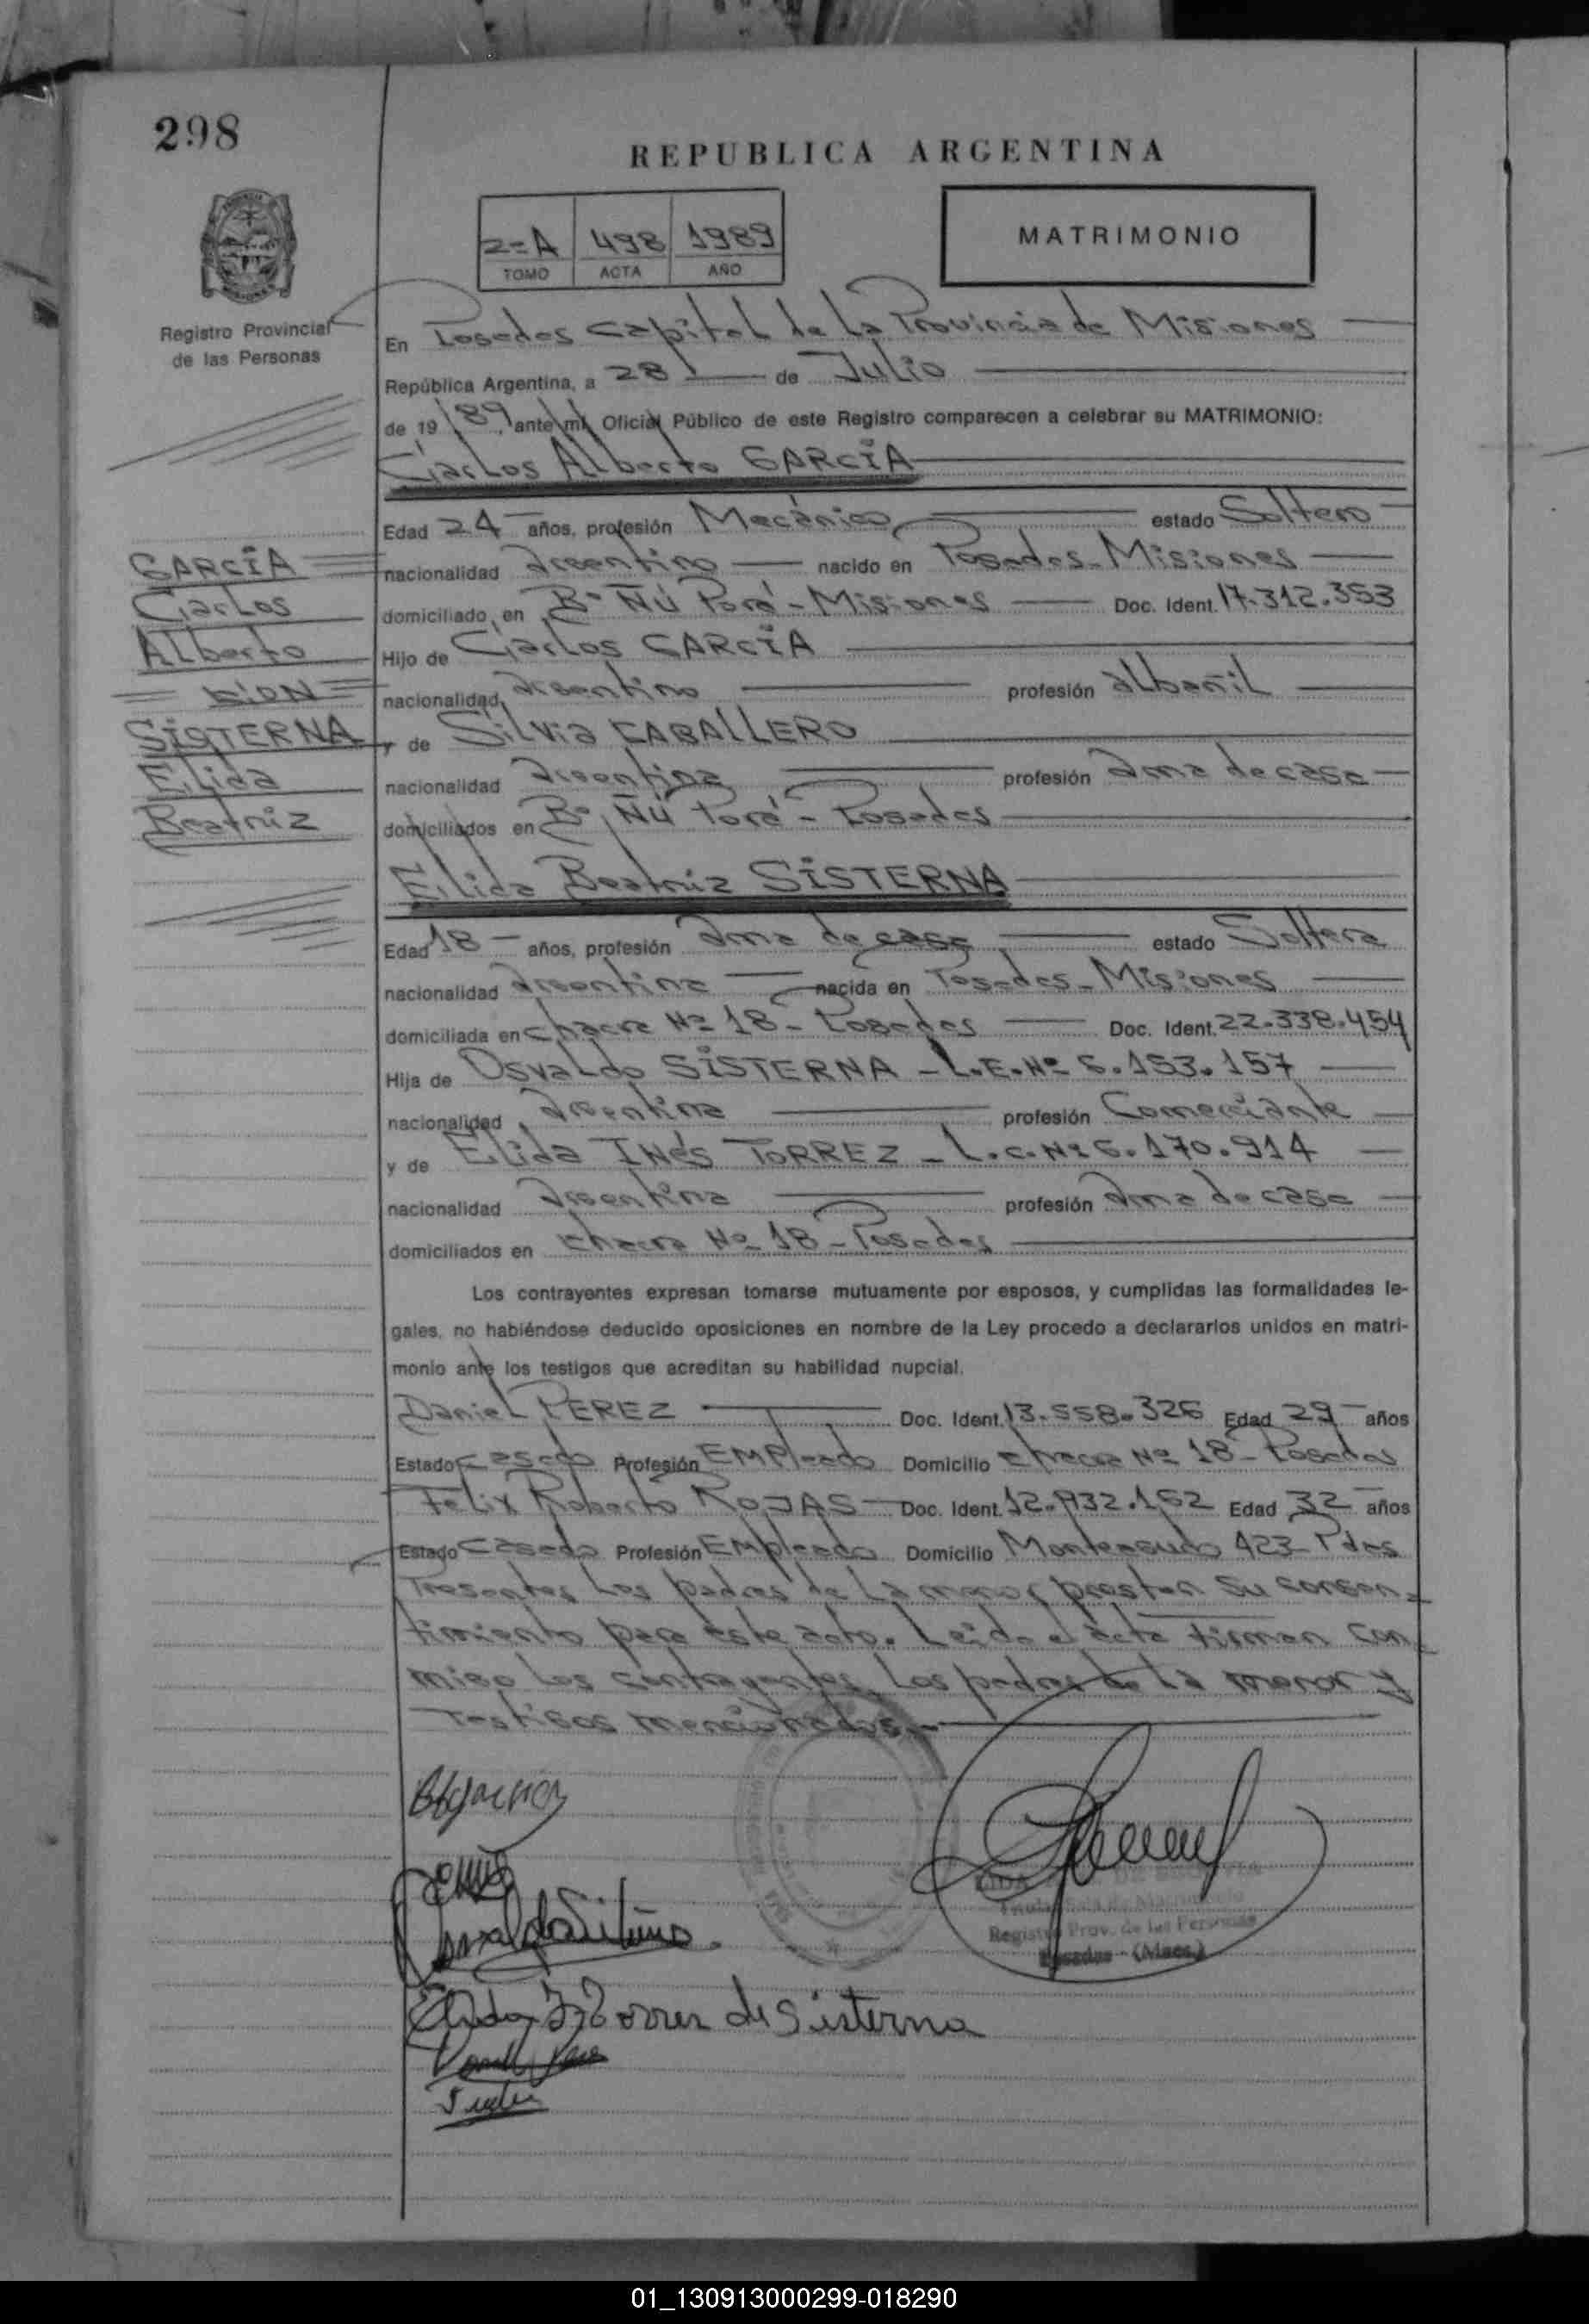 298
REPUBLICA ARGENTINA
2=A 498 1989
TOMO ACTA AÑO
MATRIMONIO
Registro Provincial
de las Personas
En Posadas capital de la Provincia de Misiones
República Argentina, a 28 de Julio
de 19 89, ante mí, Oficial Público de este Registro comparecen a celebrar su MATRIMONIO:
Carlos Alberto GARCÍA
Edad 24 años, profesión Mecánico estado Soltero
nacionalidad argentino nacido en Posadas-Misiones
domiciliado en Bº Ñú Porá-Misiones Doc. Ident. 17.312.353
Hijo de Carlos GARCÍA
nacionalidad argentino profesión albañil
y de Silvia CABALLERO
nacionalidad argentina profesión ama de casa
domiciliados en Bº Ñú Porá-Posadas
GARCÍA
Carlos
Alberto
CON
SISTERNA
Elida
Beatriz
Elida Beatriz SISTERNA
Edad 18 años, profesión ama de casa estado Soltera
nacionalidad argentina nacida en Posadas-Misiones
domiciliada en chacra Nº 18-Posadas Doc. Ident. 22.338.454
Hija de Osvaldo SISTERNA - L.E.Nº 5.153.157
nacionalidad argentina profesión Comerciante
y de Elida INés TORREZ - L.C.Nº 6.170.914
nacionalidad argentina profesión ama de casa
domiciliados en chacra Nº 18-Posadas
Los contrayentes expresan tomarse mutuamente por esposos, y cumplidas las formalidades le-
gales, no habiéndose deducido oposiciones en nombre de la Ley procedo a declararlos unidos en matri-
monio ante los testigos que acreditan su habilidad nupcial.
Daniel PEREZ Doc. Ident. 13.558.326 Edad 29 años
Estado casado Profesión EMPleado Domicilio chacra Nº 18-Posadas
Felix Roberto ROJAS Doc. Ident. 12.932.162 Edad 32 años
Estado casado Profesión EMpleado Domicilio Monteagudo 423 Pdas
Presentes los padres de la menor prestan su consen-
timiento para este acto. Leida el acta firman con-
migo los contrayentes, los padres de la menor y
testigos mencionados.-
Elida I. Torrez de Sisterna
Registro Prov. de las Personas
Posadas - (Mnes.)
01_130913000299-018290